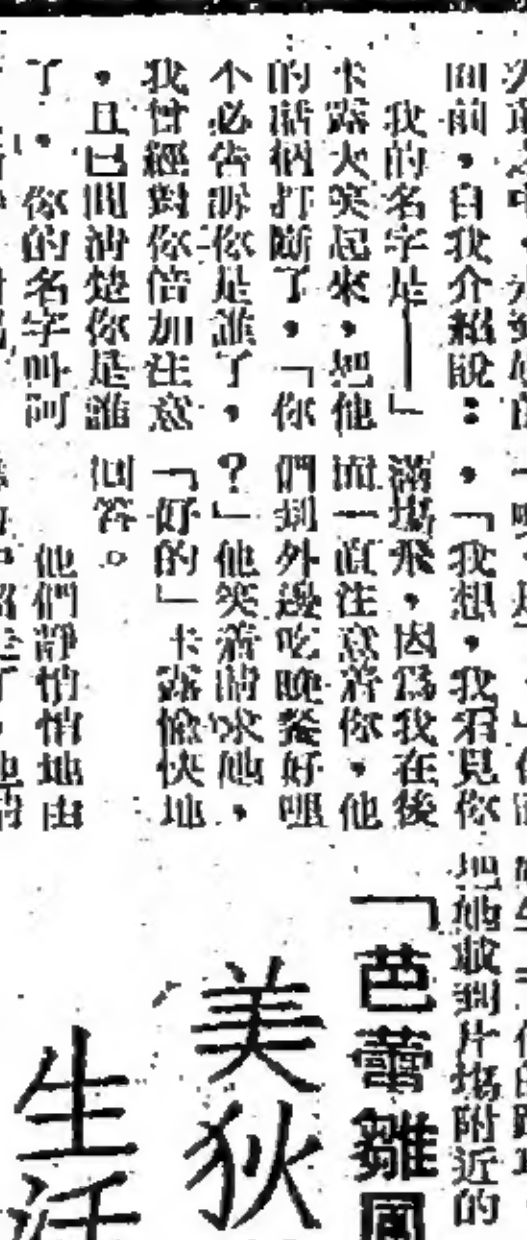 面前，自我介紹說：
我的名字是——」
卡露大笑起來，把他
的話柄打斷了。「你
不必告訴你是誰了，
我曾經對你倍加注意
，且已問清楚你是誰
了。你的名字叫
，「我想，我看見你
滿場飛，因為我在後
面一直注意着你，他
們到外邊吃晚餐好嗎
？」他笑着請求他，
「好的」卡露愉快地
回答。
他們靜悄悄地由
把他載到片場附近的
「芭蕾雛鳳
美狄
生活